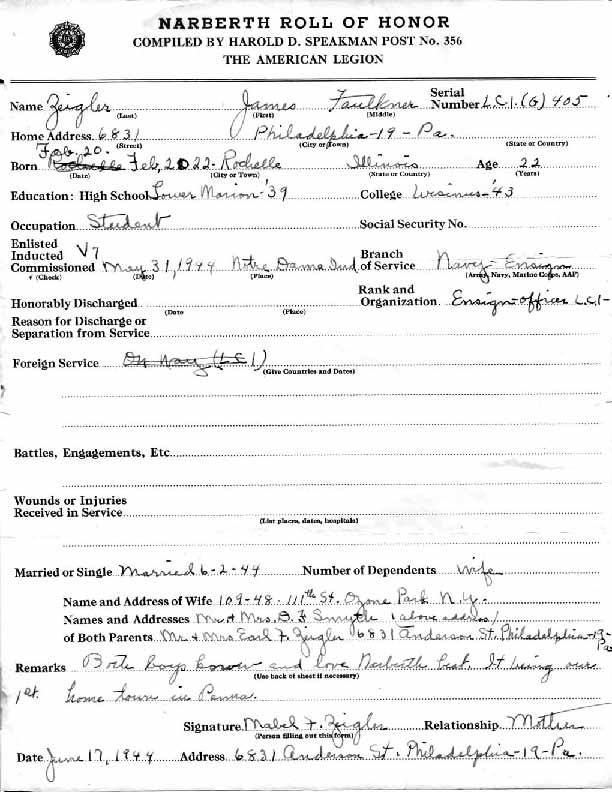 NARBERTH ROLL OF HONOR
COMPILED BY HAROLD D. SPEAKMAN POST No. 356
THE AMERICAN LEGION
Name Zeigler James Faulkner Serial Number L.C.I.(G) 405
(Last) (First) (Middle)
Home Address 6831 Philadelphia-19-Pa.
(Street) (City or Town) (State or Country)
Feb. 20.
Born Rochelle Feb, 20 22 - Rochelle Illinois Age 22
(Date) (City or Town) (State or Country) (Years)
Education: High School Lower Marion-'39 College Ursinus-'43
Occupation Student Social Security No.
Enlisted
Inducted V7
Commissioned May 31, 1944 Notre Dame Ind Branch of Service Navy-Ensign
(Check) (Date) (Place) (Army, Navy, Marine Corps, AAF)
Honorably Discharged Rank and Organization Ensign-officer L.C.I-
(Date (Place)
Reason for Discharge or
Separation from Service
Foreign Service On Way (LCI)
(Give Countries and Dates)
Battles, Engagements, Etc.
Wounds or Injuries
Received in Service
(List places, dates, hospitals)
Married or Single Married 6-2-44 Number of Dependents wife
Name and Address of Wife 109-48-111th St. Ozone Park N.Y.-
Names and Addresses Mr & Mrs. D. F Smyth (above address)
of Both Parents Mr. & Mrs Earl F. Zeigler 6831 Anderson St. Philadelphia-19-Pa
Remarks Both boys and love Narberth best. It being our
(Use back of sheet if necessary)
1st. home town in Penna.
Signature Mabel F. Zeigler Relationship Mother
(Person filling out this form)
Date June 17, 1944 Address 6831 Anderson St. Philadelphia-19-Pa.